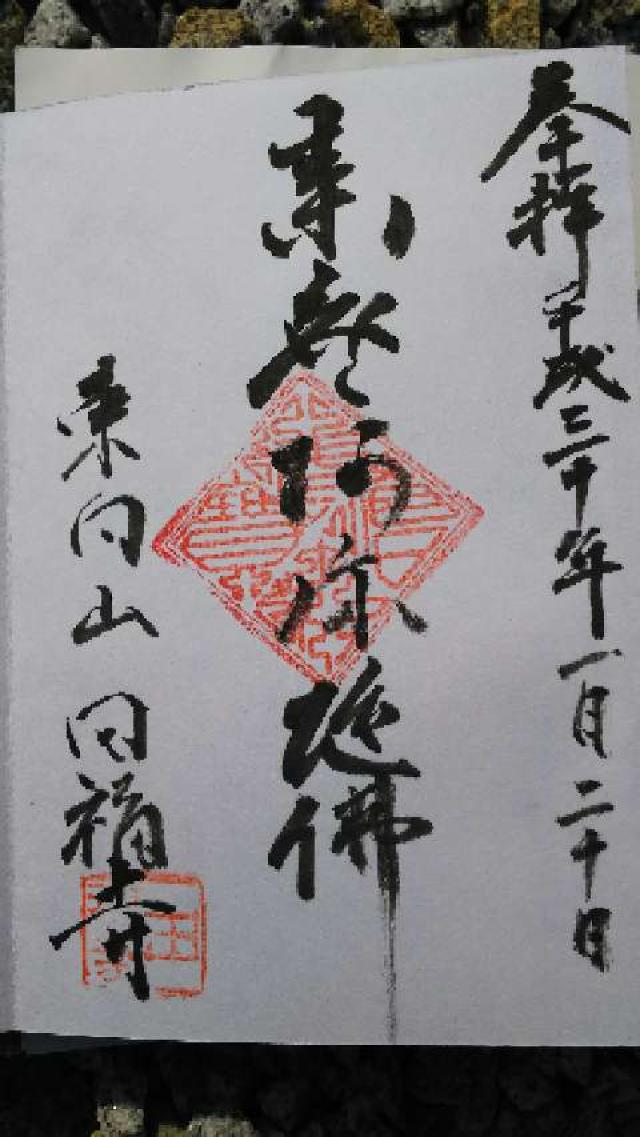 奉拝 平成三十年一月二十日
南無阿弥陀佛
東向山 円福寺